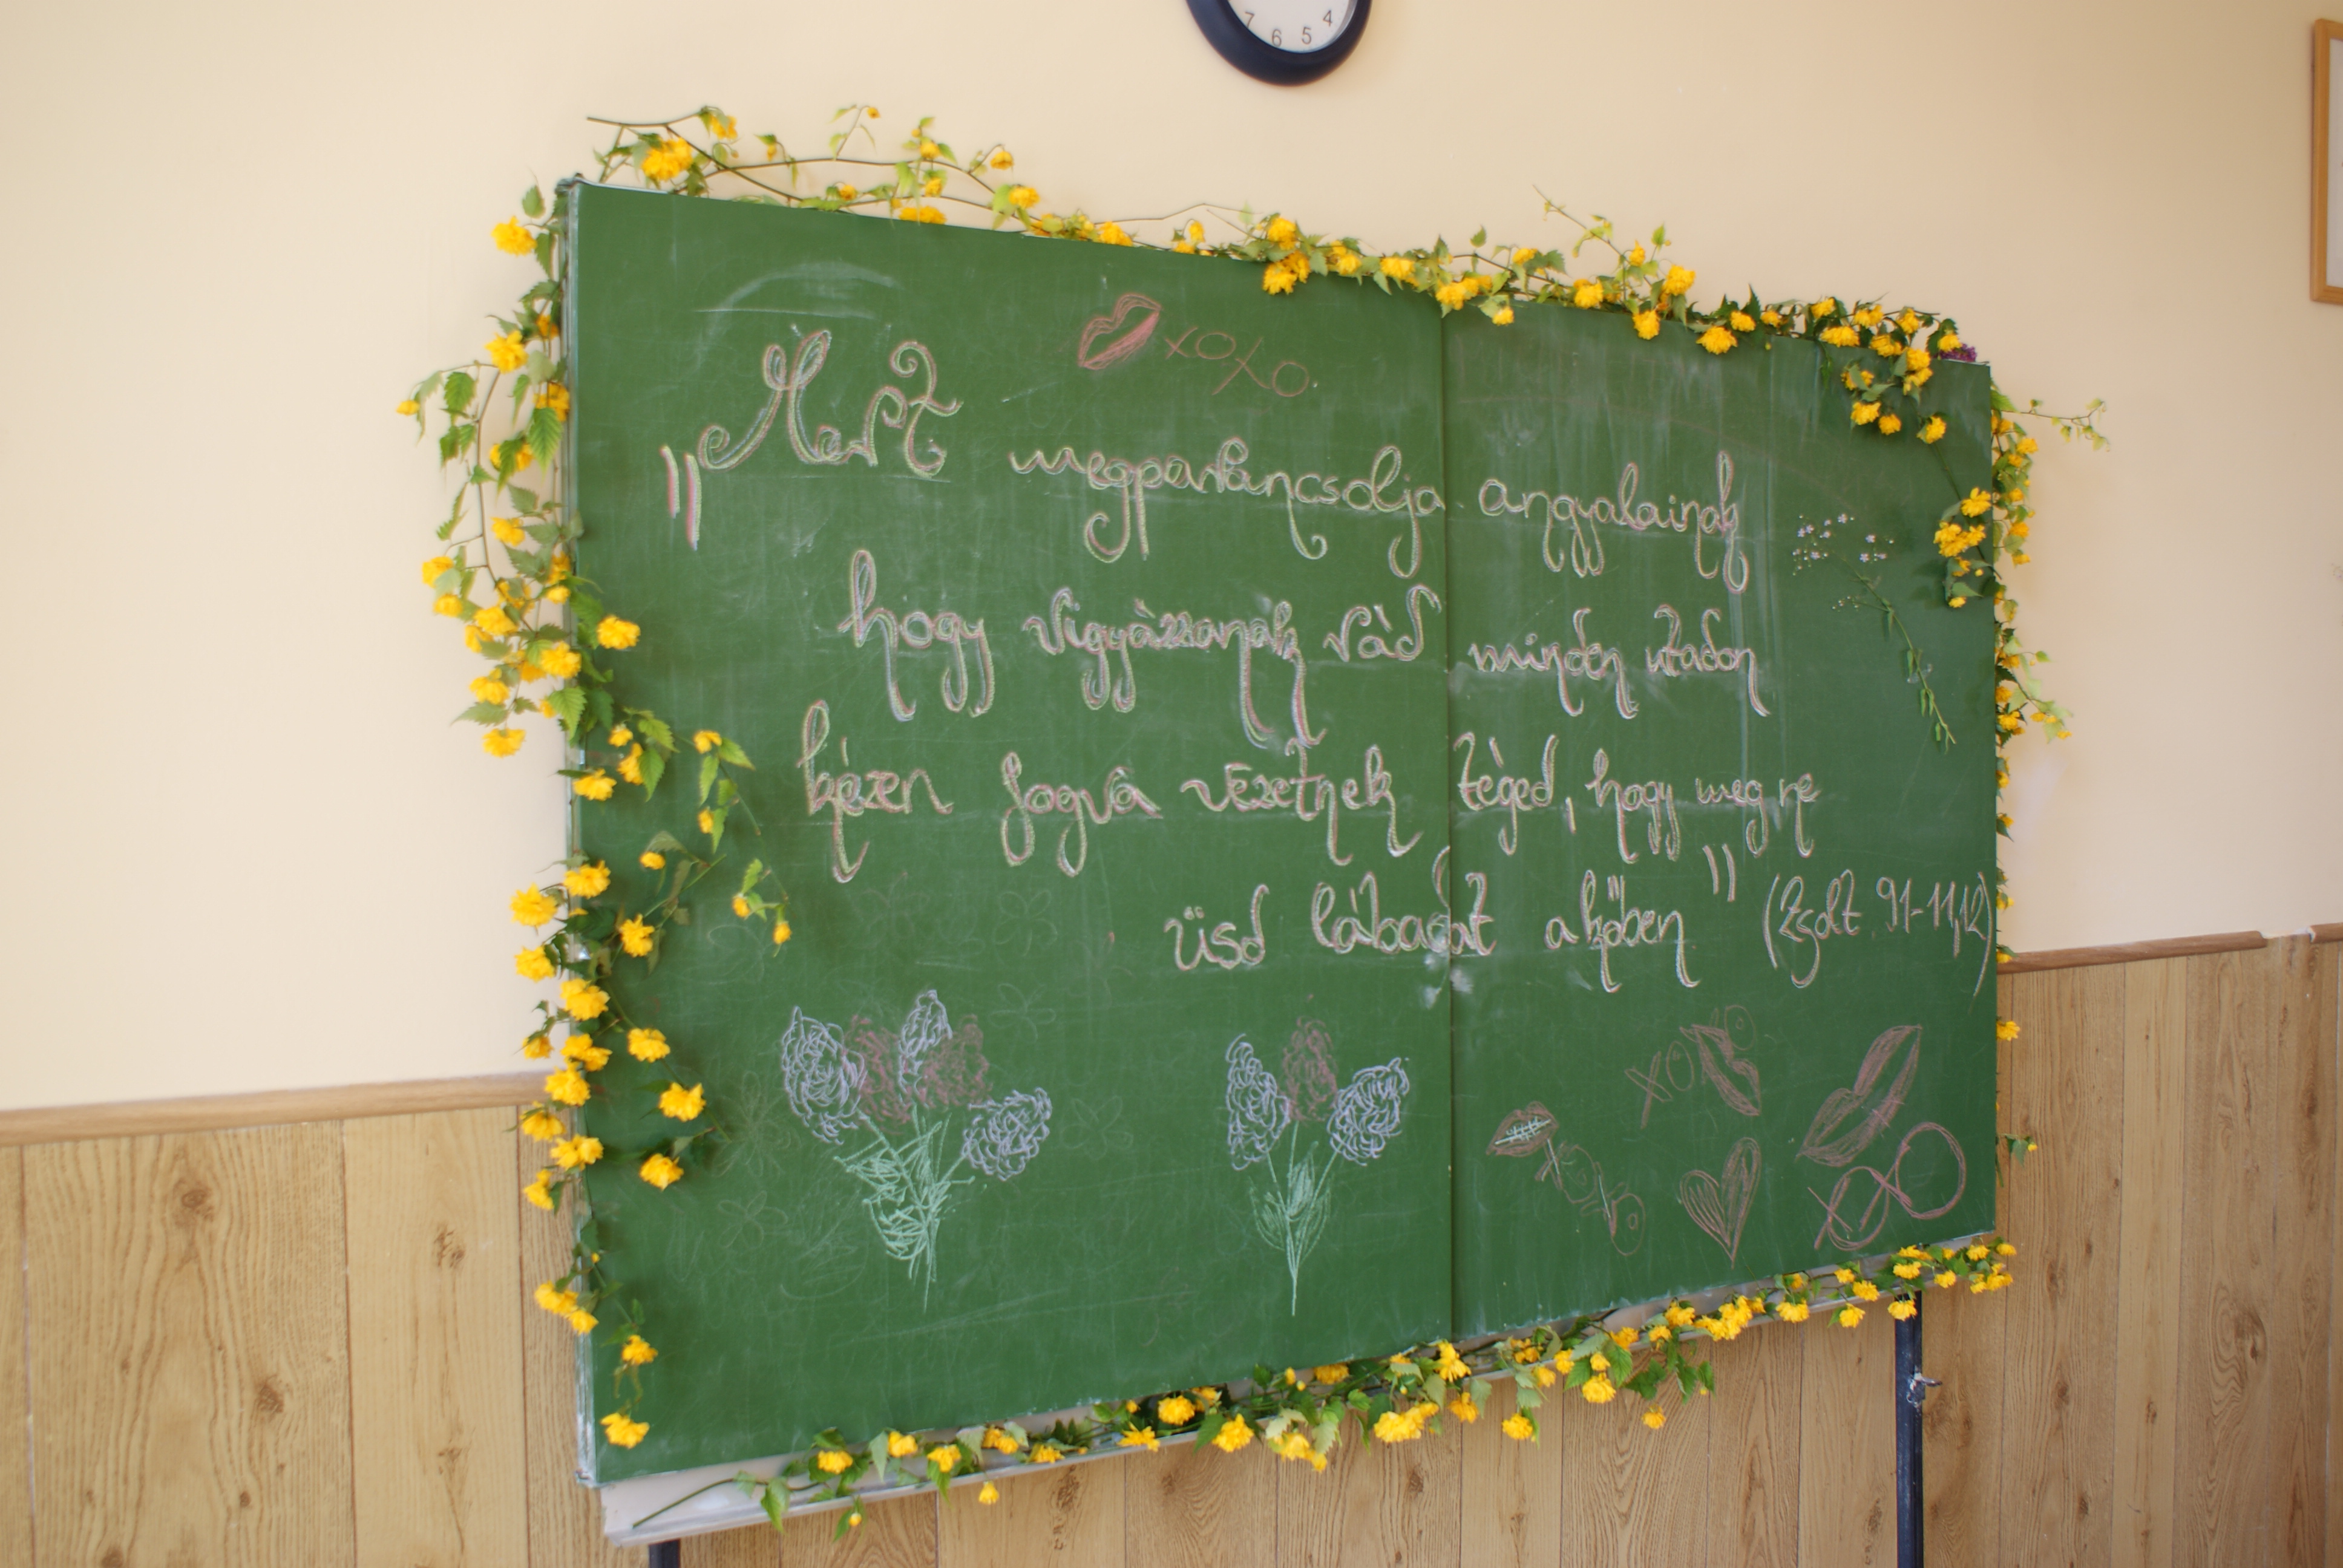 7 6 5 4
xoxo
„Mert megparancsolja angyalainak
hogy vigyázzanak rád minden utadon
kézen fogva vezetnek téged, hogy meg ne
üsd lábadat a kőben" (Zsolt. 91-11,12)
XO
XOXO
XOXO